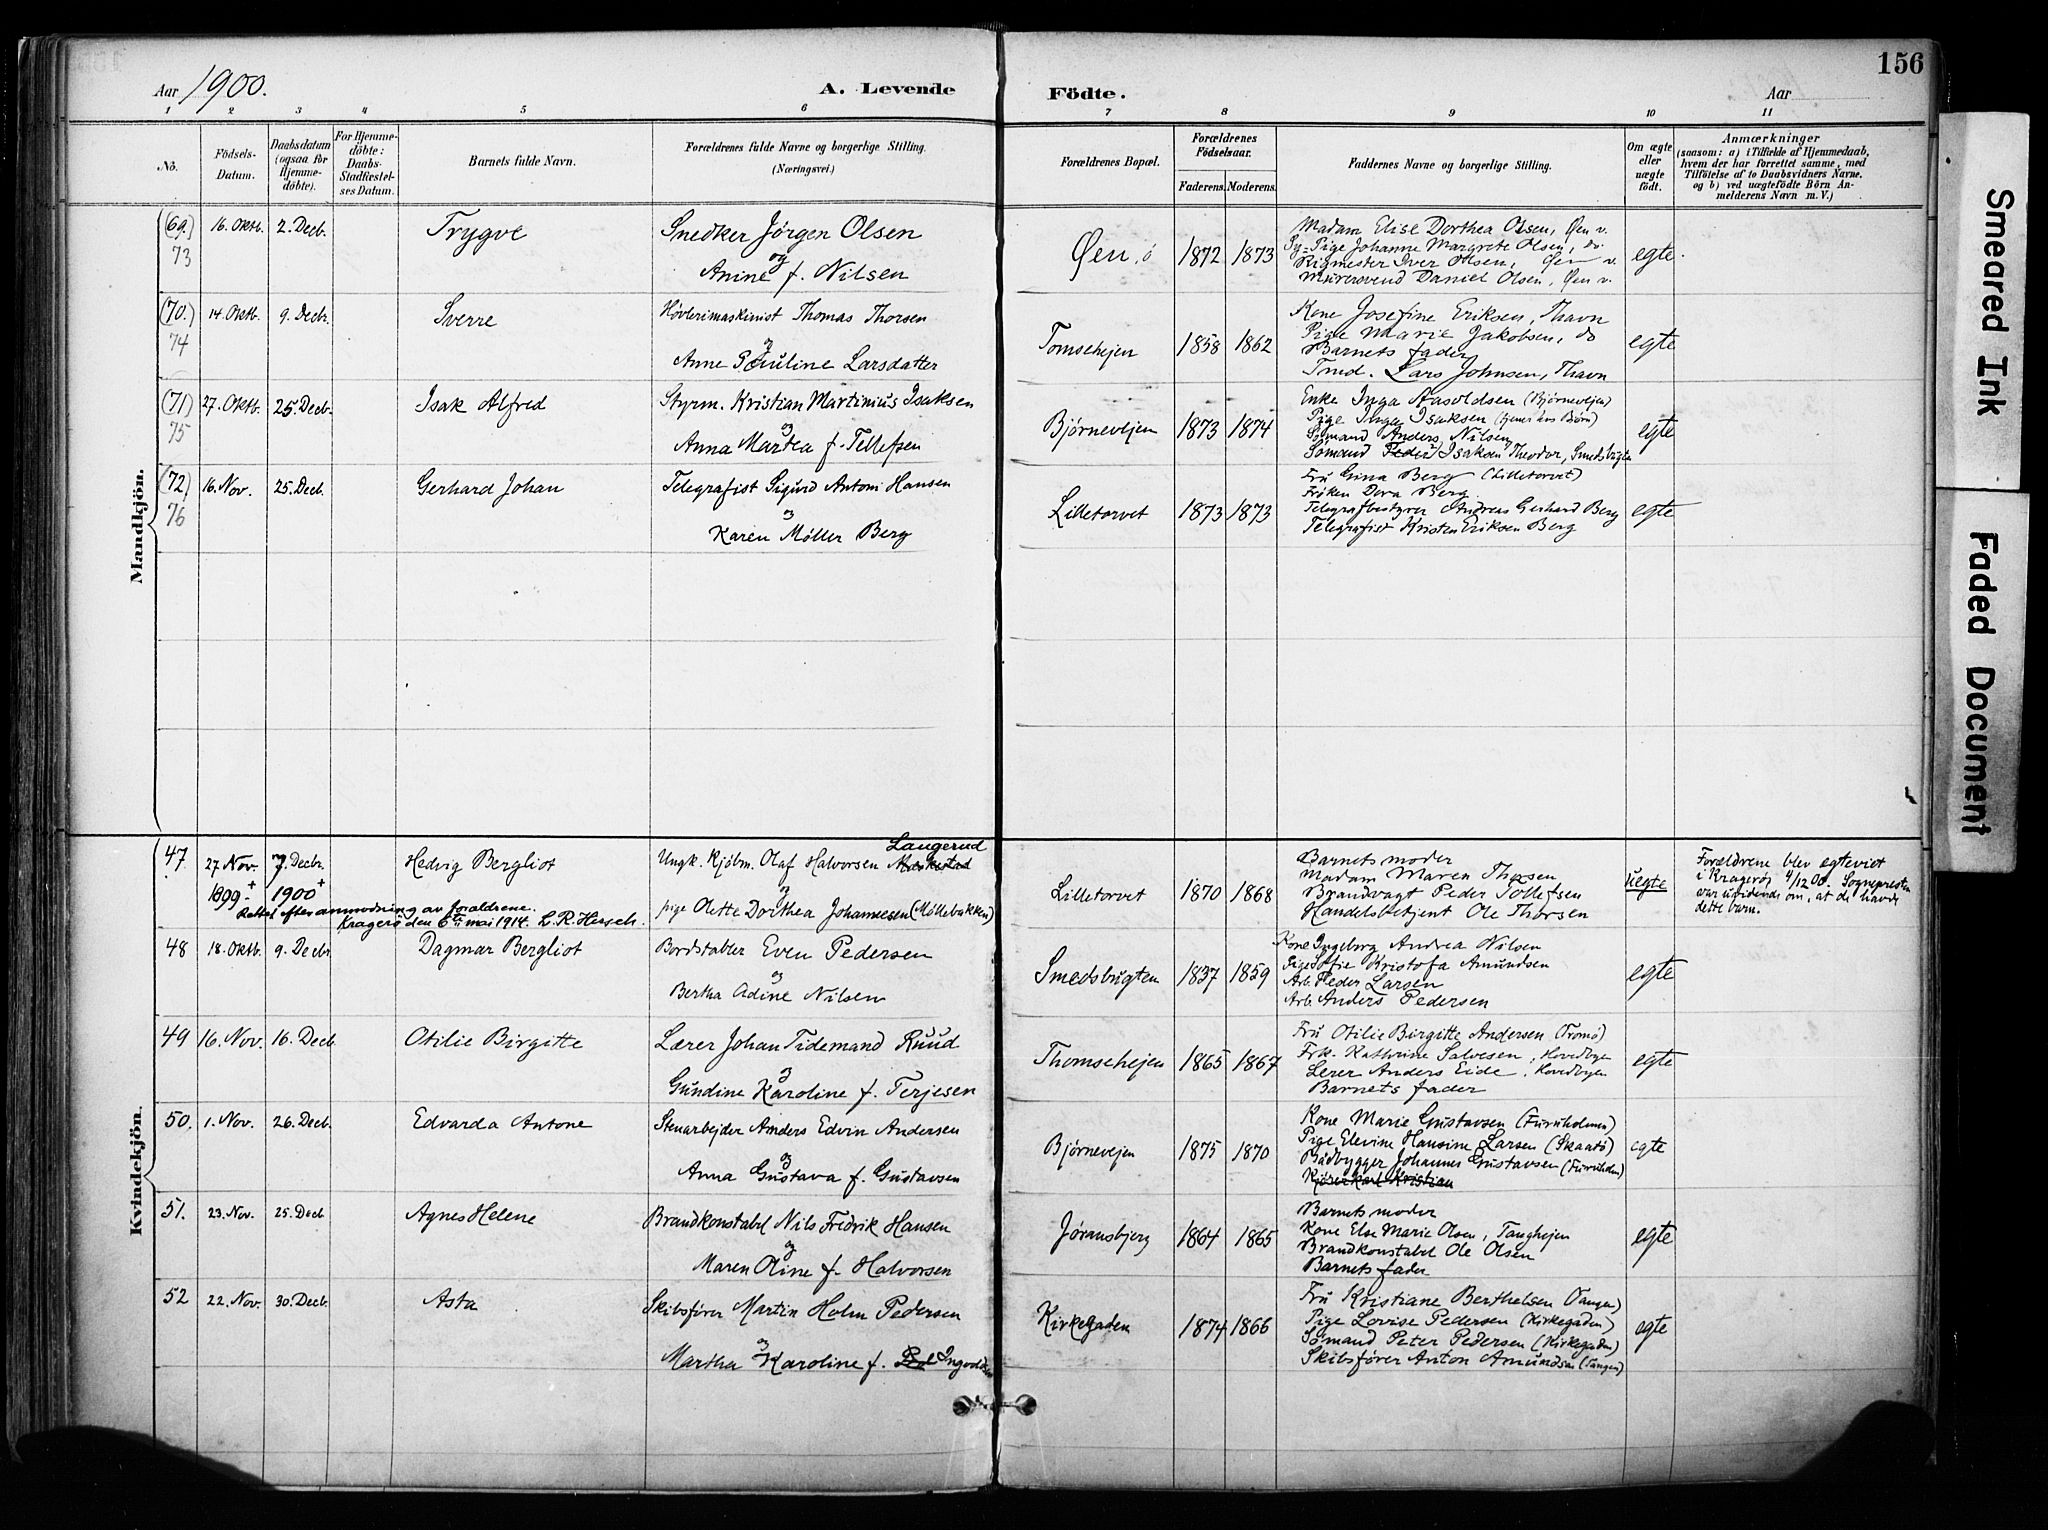 156
Aar 1900.
A. Levende Födte.
Aar
1 2 3 4 5 6 7 8 9 10 11
No.
Födsels-
Datum.
Daabsdatum
(ogsaa for
Hjemme-
döbte).
For Hjemme-
döbte:
Daabs-
Stadfæstel-
ses Datum.
Barnets fulde Navn.
Forældrenes fulde Navne og borgerlige Stilling.
(Næringsvei.)
Forældrenes Bopæl.
Forældrenes
Födselsaar.
Faderens. Moderens.
Faddernes Navne og borgerlige Stilling.
Om ægte
eller
uægte
födt.
Anmærkninger
(saasom: a) i Tilfælde af Hjemmedaab,
hvem der har forrettet samme, med
Tilföielse af to Daabsvidners Navne.
og b) ved uægtefödte Börn An-
melderens Navn m. V.)
Mandkjön.
(69.)
73
16. Oktb.
2. Decb.
Trygve
Snedker Jørgen Olsen
og
Anine f. Nilsen
Øen, ö
1872
1873
Madam Elise Dorthea Olsen, Øen v.
Pige Johanne Margrete Olsen, do
Rigmester Iver Olsen, Øen v.
Murersvend Daniel Olsen, Øen v.
egte.
(70.)
74
14. Oktb.
9. Decbr.
Sverre
Høvlerimaskinist Thomas Thorsen
og
Anne Pauline Larsdatter
Tomsehejen
1858
1862
Kone Josefine Eriksen, Thavn
Pige Marie Jakobsen, do
Barnets fader
Tmd. Lars Johnsen, Thavn
egte
(71)
75
27. Oktb.
25. Decb.
Isak Alfred
Styrm. Kristian Martinius Isaksen
og
Anna Martea f. Tellefsen
Bjørnevejen
1873
1874
Enke Inga Aasoldsen (Bjørnevejen)
Pige Inga Isaksen
Sømand Anders Nilsen
Sømand Peder Isaksen Theodor, Smedsbugte
egte
(72)
76
16. Nov.
25. Decb.
Gerhard Johan
Telegrafist Sigurd Antom Hansen
og
Karen Møller Berg
Lilletorvet
1873
1873
Fru Gina Berg (Lilletorvet)
Frøken Dora Berg
Telegrafbestyrer Andreas Gerhard Berg
Telegrafist Kristen Eriksen Berg
egte
Kvindekjön.
47.
27 Nov.
1899 +
7. Decbr.
1900 +
Rettet efter anmodning av foraldrene.
Kragerø den 6te mai 1914. L. R. Hersch.
Hedvig Bergliot
Langerud
Ungk. Kjøbm. Olaf Halvorsen
og
pige Olette Dorthea Johannesen (Møllebakken)
Lilletorvet
1870
1868
Barnets moder
Madam Maren Thorsen
Brandvagt Peder Tollefsen
Handelsbetjent Ole Thorsen
uegte
Forældrene blev egteviet
i Kragerø, 4/12 00. Sognepresten
var uvidende om, at de havde
dette barn.
48
18. Oktb.
9. Decbr.
Dagmar Bergliot
Bordstabler Even Pedersen
og
Bertha Adine Nilsen
Smedsbugten
1837
1859
Kone Ingeborg Andrea Nilsen
Pige Sofie Kristofa Amundsen
Arb. Peder Larsen
Arb. Anders Pedersen
egte
49
16. Nov.
16. Decb.
Otilie Birgitte
Lærer Johan Tidemand Ruud
og
Gundine Karoline f. Terjesen
Thomsehejen
1865
1867
Fru Otilie Birgitte Andersen (Tromø)
Frk. Kathrine Salvesen, Hovedbyen
Lærer Anders Eide, Hovedbyen
Barnets fader
egte
50.
1. Nov.
26. Decb.
Edvarda Antone
Stenarbejder Anders Edvin Andersen
og
Anna Gustava f. Gustavsen
Bjørnevejen
1875
1870
Kone Marie Gustavsen (Furuholmen)
Pige Elevine Hansine Larsen (Skaatø)
Baadbygger Johannes Gustavsen (Furuholm)
Kjører Karl Kristian
egte
51.
23. Nov.
25. Decb
Agnes Helene
Brandkonstabel Nils Fredrik Hansen
og
Maren Oline f. Halvorsen
Jøransbjerg
1864
1865
Barnets moder
Kone Else Marie Olsen, Tanghejen
Brandkonstabel Ole Olsen
Barnets fader
egte
52
22. Nov.
30. Decb.
Asta
Skibsfører Martin Holm Pedersen
og
Martha Karoline f. Ped Ingvoldsen
Kirkegaden
1874
1866
Fru Kristiane Berthelsen (Tangen)
Pige Lovise Pedersen (Kirkegaden)
Sømand Peter Pedersen (Kirkegaden)
Skibsfører Anton Amundsen (Tangen)
egte
Smeared Ink
Faded Document